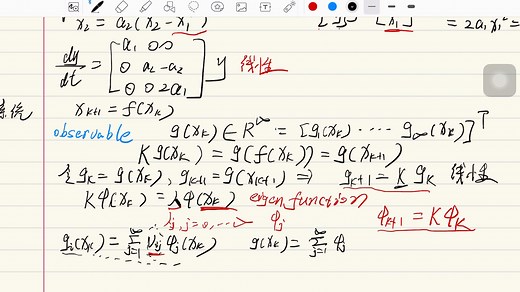 ẋ₂ = a₂(x₂ - x₁²) = 2a₁x₁² =
dy/dt = [a₁ 0 0; 0 a₂ -a₂; 0 0 2a₁] y 线性
系统 x_{k+1} = f(x_k)
observable g(x_k) ∈ R^∞ = [g₁(x_k) ⋯ g_∞(x_k)]^T
K g(x_k) = g(f(x_k)) = g(x_{k+1})
令 g_k = g(x_k), g_{k+1} = g(x_{k+1}) ⇒ g_{k+1} = K g_k 线性
K φ(x_k) = λ φ(x_k) eigen function
λ_j, j=0, ⋯ ∞ φ_j φ_{k+1} = K φ_k
g_i(x_k) = ∑_{j=1}^∞ v_{ij} φ_j(x_k) g(x_k) = ∑_{j=1}^∞ φ_j